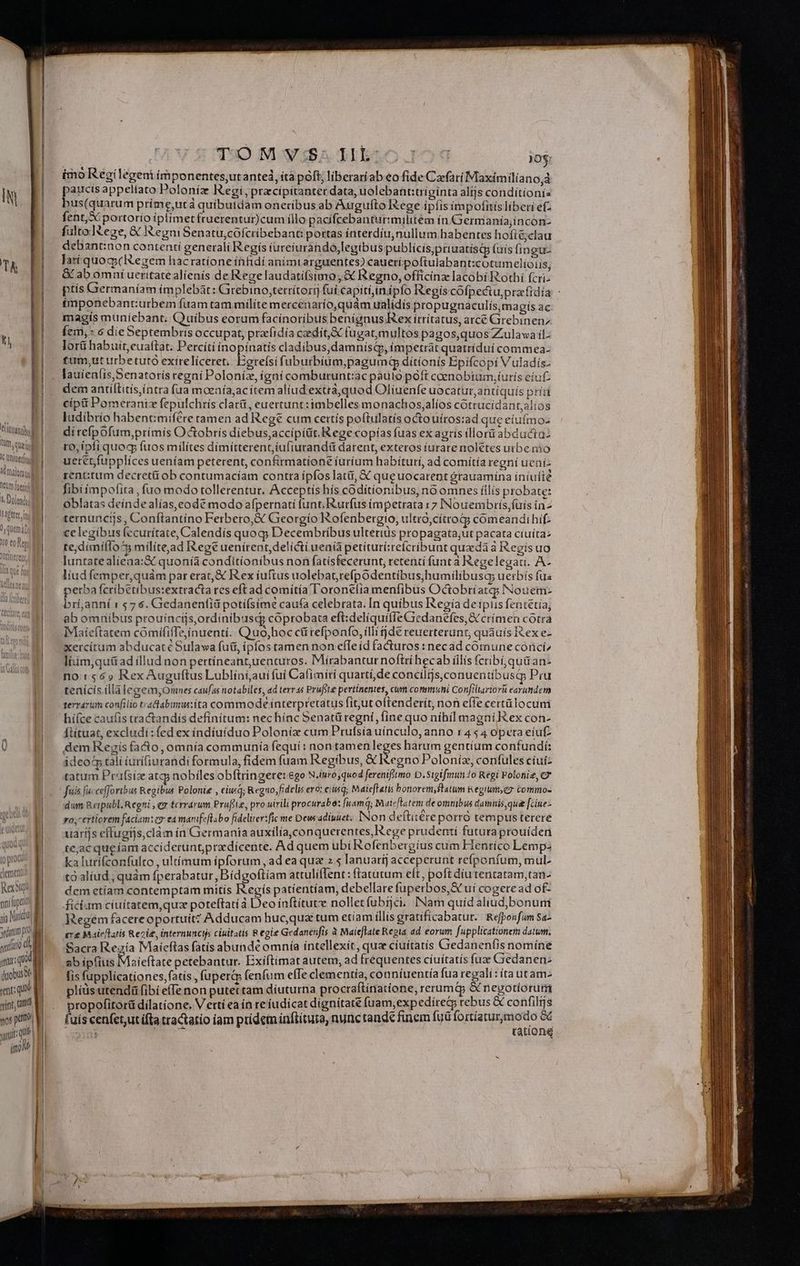 TOMVS III. 105
imò Regi legem imponentes, ut anteà, ita pòst, liberari ab eo fide Cæsari Maximiliano, à
paucis appellato Poloniæ Regi, præcipitanter data, uolebant: triginta alijs conditioni-
bus (quarum prime, ut à quibusdam oneribus ab Augusto Rege ipsis impositis liberi es-
sent, & portorio ipsimet fruerentur) cum illo pacifcebantur: militem in Germania, incon-
sulto Rege, & Regni Senatu, cōscribebant: portas interdiu, nullum habentes hostē, clau
debant: non contenti generali Regis iureiurando, legibus publicis, priuatisq; suis singu-
lari quoq; (Regem hac ratione infidi animi arguentes) caueri postulabant: cōtumeliosis,
& ab omni ueritate alienis de Rege laudatissimo, & Regno, officinæ Iacobi Rothi scri-
ptis Germaniam implebāt: Grebino, territorij sui capiti, in ipso Regis cōspectu, præsidia
imponebant: urbem suam tam milite mercenario, quàm ualidis propugnaculis, magis ac
magis muniebant. Quibus eorum facinoribus benignus Rex irritatus, arcē Grebinen-
sem, 16 die Septembris occupat, præsidia cædit, & fugat, multos pagos, quos Zulawa il-
lorū habuit, euastat. Perciti inopinatis cladibus, damnisq;, impetrāt quatridui commea-
tum, ut urbe tutò exire liceret. Egressi suburbium, pagumq; ditionis Episcopi Vuladis-
lauiensis, Senatoris regni Poloniæ, igni comburunt: ac paulò pòst cœnobium, iuris eius-
dem antistitis, intra sua mœnia, ac item aliud extrà, quod Oliuense uocatur, antiquis prin
cipū Pomeraniæ sepulchris clarū, euertunt: imbelles monachos, alios cōtrucidant, alios
ludibrio habent: misēre tamen ad Regē cum certis postulatis octo uiros: ad quę eiusmo-
di respōsum, primis Octobris diebus, accipiūt. Rege copias suas ex agris illorū abductu-
ro, ipsi quoq; suos milites dimitterent, iusiurandū darent, exteros iurare nolētes urbe mo
uerēt, supplices ueniam peterent, confirmatione iurium habituri, ad comitia regni ueni-
rent: tum decretū ob contumaciam contra ipsos latū, & quę uocarent grauamina iniustè
sibi imposita, suo modo tollerentur. Acceptis his cōditionibus, nō omnes illis probatę:
oblatas deinde alias, eodē modo aspernati sunt. Rursus impetrata 17 Nouembris, suis in-
ternuncijs, Constantino Ferbero, & Georgio Rosenbergio, ultrò, citroq; cōmeandi hīs-
ce legibus securitate, Calendis quoq; Decembribus ulteriùs propagata, ut pacata ciuita-
te, dimissoq; milite, ad Regē uenirent, delicti ueniā petituri: rescribunt quædā à Regis uo
luntate aliena: & quoniā conditionibus non satisfecerunt, retenti sunt à Rege legati. A-
liud semper, quàm par erat, & Rex iustus uolebat, respōdentibus, humilibusq; uerbis sua
perba scribētibus: extracta res est ad comitia Toronesia mensibus Octobri atq; Nouem-
bri, anni 1576. Gedanensiū potissimè causa celebrata. In quibus Regia de ipsis sentētia,
ab omnibus prouincijs, ordinibusq; cōprobata est: deliquisse Gedanēses, & crimen cōtra
Maiestatem cōmisisse, inuenti. Quo, hoc cū responso, illi ijdē reuerterunt, quāuis Rex e-
xercitum abducatē Sulawa suū, ipsos tamen non esse id facturos: necad cōmune conci-
lium, quū ad illud non pertineant, uenturos. Mirabantur nostri hęc ab illis scribi, quū an-
no 1569 Rex Augustus Lublini, aui sui Casimiri quarti, de concilijs, conuentibusq; Pru
tenicis illā legem, Omnes causas notabiles, ad terras Prußiæ pertinentes, cum communi Consiliariorū earundem
terrarum consilio tractabimus: ita commodè interpretatus sit, ut ostenderit, non esse certū locum
hisce causis tractandis definitum: nec hinc Senatū regni, sine quo nihil magni Rex con-
stituat, excludi: sed ex indiuiduo Poloniæ cum Prussia uinculo, anno 1454 opera eius-
dem Regis facto, omnia communia sequi: non tamen leges harum gentium confundi:
ideoq; tali iurisiurandi formula, fidem suam Regibus, & Regno Poloniæ, consules ciui-
tatum Prussiæ atq; nobiles obstringere: Ego N. iuro, quod serenißimo D. Sigismundo Regi Poloniæ, &
suis successoribus Regibus Poloniæ, eiusq; Regno, fidelis ero: eiusq; Maiestatis honorem, statum Regium, & commo-
dum Reipubl. Regni, & terrarum Prußiæ, pro uirili procurabo: suamq; Maiestatem de omnibus damnis, quæ sciue-
ro, certiorem faciam: & ea manifestabo fideliter: sic me Deus adiuuet. Non destitēre porrò tempus terere
uarijs effugijs, clàm in Germania auxilia, conquerentes, Rege prudenti futura prouiden
te, ac quę iam acciderunt, prædicente. Ad quem ubi Rosenbergius cum Henrico Lemp-
ka Iurisconsulto, ultimum ipsorum, ad ea quæ 25 Ianuarij acceperunt responsum, mul-
tò aliud, quàm sperabatur, Bidgostiam attulissent: statutum est, post diu tentatam, tan-
dem etiam contemptam mitis Regis patientiam, debellare superbos, & ui cogere ad of-
ficium ciuitatem, quæ potestati à Deo institutæ nollet subijci. Nam quid aliud, bonum
Regem facere oportuit? Adducam huc, quæ tum etiam illis gratificabatur. Responsum Sa-
cræ Maiestatis Regiæ, internuncijs ciuitatis Regiæ Gedanensis à Maiestate Regia ad eorum supplicationem datum.
Sacra Regia Maiestas satis abundè omnia intellexit, quæ ciuitatis Gedanensis nomine
ab ipsius Maiestate petebantur. Existimat autem, ad frequentes ciuitatis suæ Gedanen-
sis supplicationes, satis, superq; sensum esse clementia, conniuentia sua regali: ita ut am-
pliùs utendū sibi esse non putet tam diuturna procrastinatione, rerumq; & negotiorum
propositorū dilatione. Verti ea in re iudicat dignitatē suam, expedireq; rebus & consilijs
suis censet, ut ista tractatio iam pridem instituta, nunc tandē finem suū sortiatur, modo &
ratione